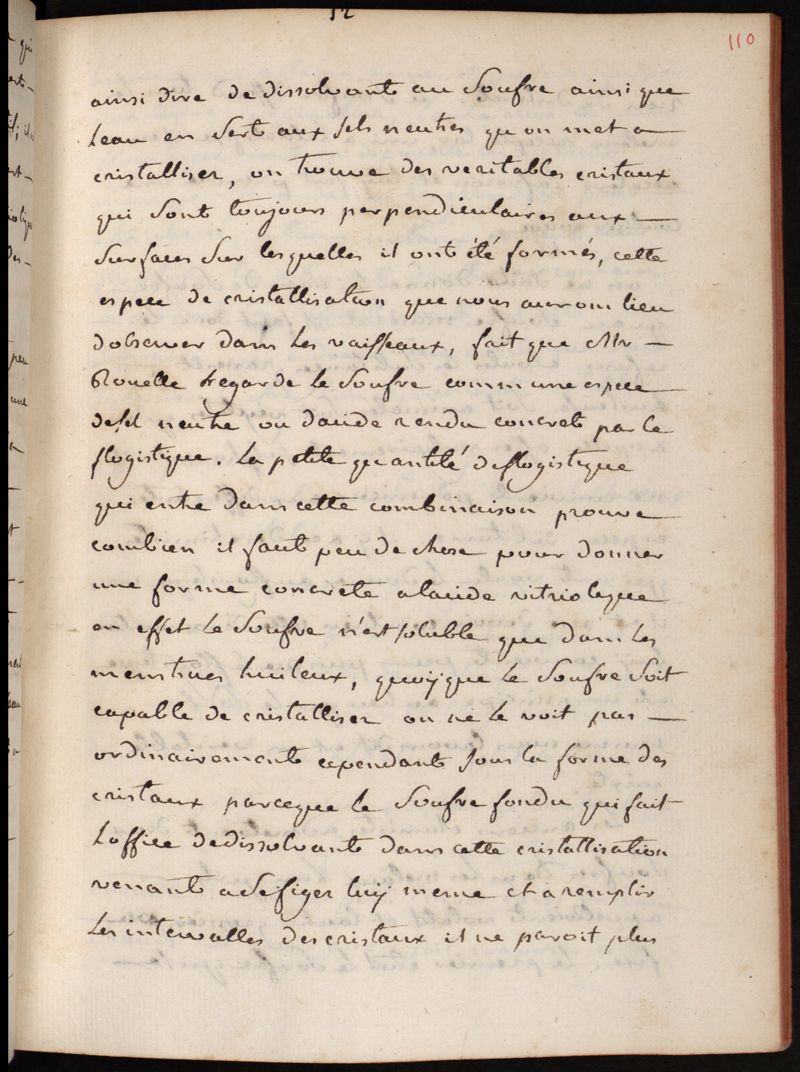 52
110
ainsi dire de dissolvant au Soufre ainsi que
leau en Sert aux sels neutres qu on met a
cristalliser, on trouve des veritables cristaux
qui Sont toujours perpendiculaires aux
Surfaces Sur lesquelles il ont été formés, cette
espece de cristallisation que nous aurons lieu
dobserver dans les vaisseaux, fait que Mr
Rouelle regarde le Soufre comm une espece
de sel neutre ou dacide rendu concret par le
flogistique. La petite quantité de flogistique
qui entre dans cette combinaison prouve
combien il faut peu de chose pour donner
une forme concrete a lacide vitriolique
en effet le Soufre n'est soluble que dans les
menstrues huileux, quoyque le Soufre Soit
capable de cristalliser on ne le voit pas
ordinairement cependant sous la forme des
cristaux parceque le Soufre fondu qui fait
Loffice de dissolvant dans cette cristallisation
venant a Se figer luy meme et a remplir
les intervalles des cristaux il ne paroit plus